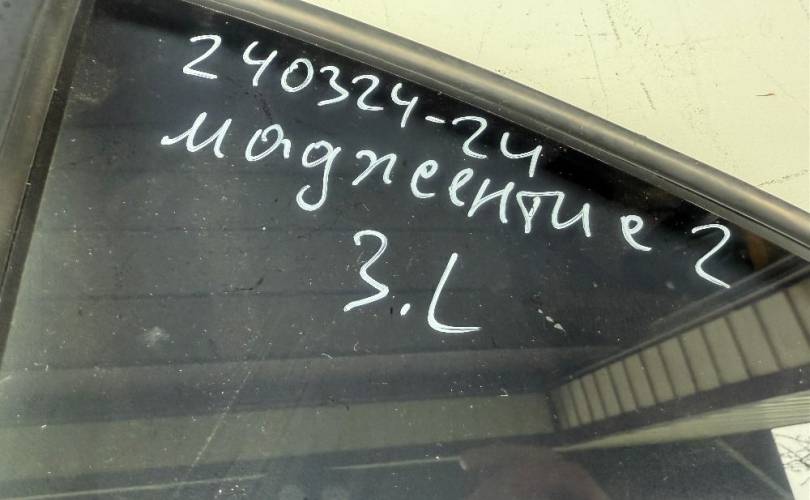 240324-24
маджентие 2
3.L